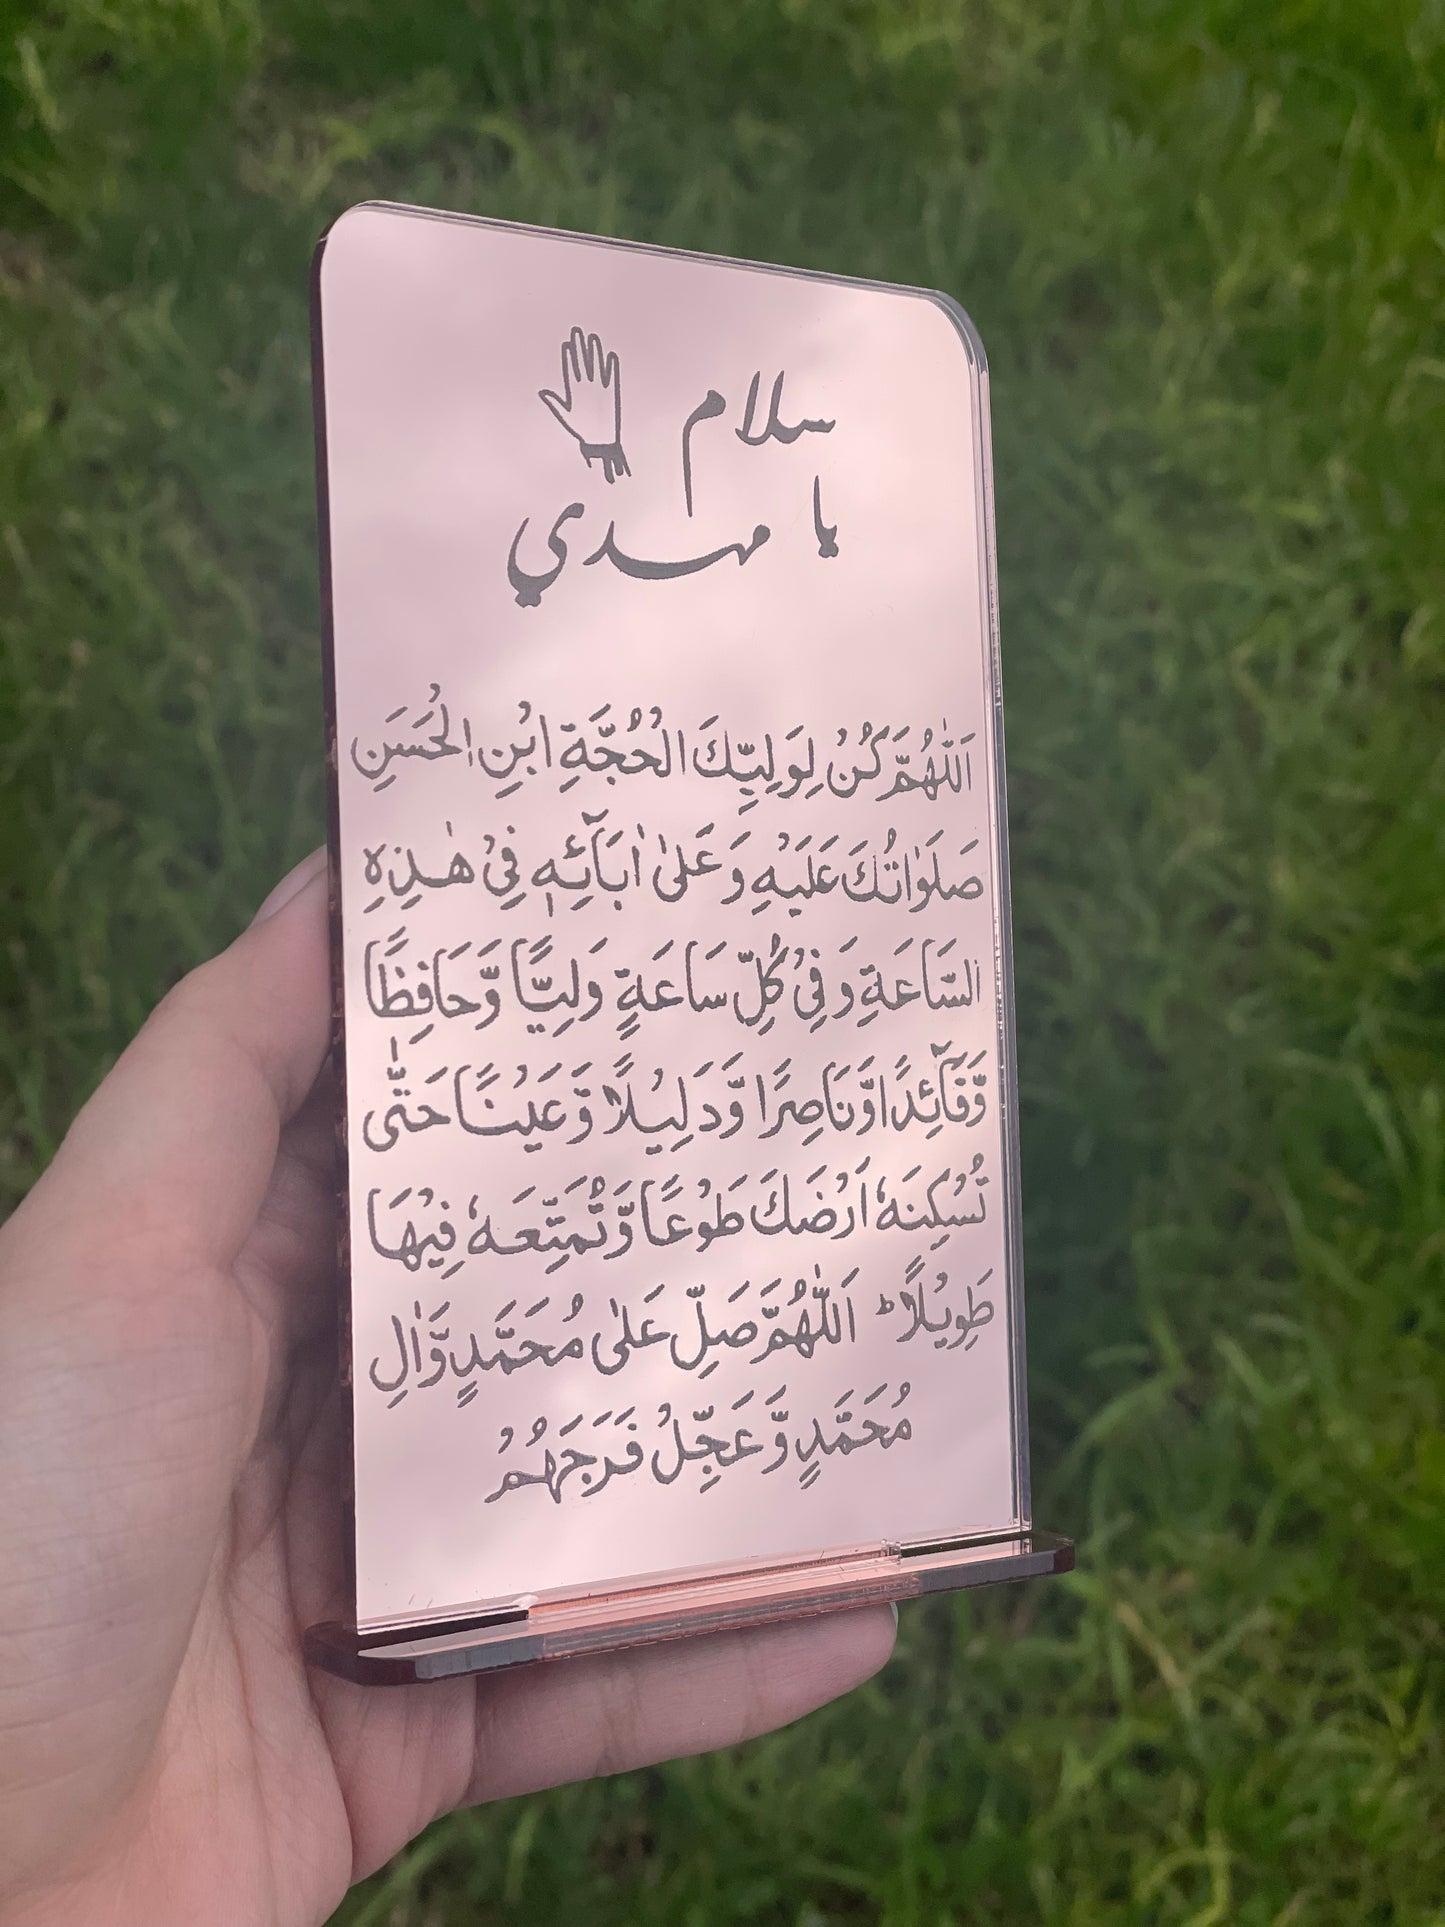 سلام
يا مهدي
اَللّٰهُمَّ كُنْ لِوَلِيِّكَ الْحُجَّةِ ابْنِ الْحَسَنِ
صَلَوٰاتُكَ عَلَيْهِ وَ عَلىٰ اٰبَآئِهٖ فِيْ هٰذِهِ
السَّاعَةِ وَ فِيْ كُلِّ سَاعَةٍ وَلِيًّا وَّحَافِظًا
وَّقَآئِدًا وَّنَاصِرًا وَّدَلِيْلًا وَّعَيْنًا حَتّٰى
تُسْكِنَهٗ اَرْضَكَ طَوْعًا وَّتُمَتِّعَهٗ فِيْهَا
طَوِيْلًاؕ اَللّٰهُمَّ صَلِّ عَلىٰ مُحَمَّدٍ وَّاٰلِ
مُحَمَّدٍ وَّ عَجِّلْ فَرَجَهُمْ